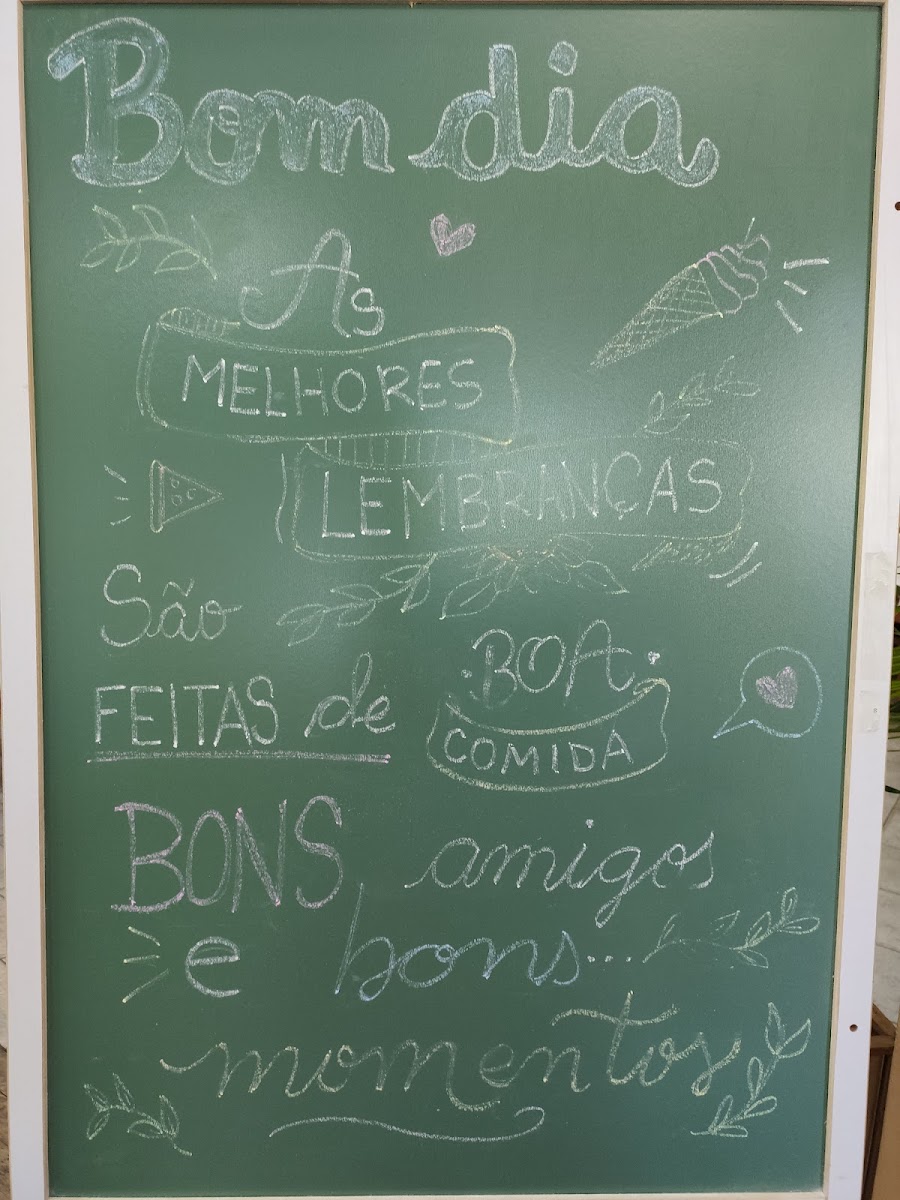 Bom dia
As
MELHORES
LEMBRANÇAS
São
FEITAS de BOA
COMIDA
BONS amigos
e bons...
momentos